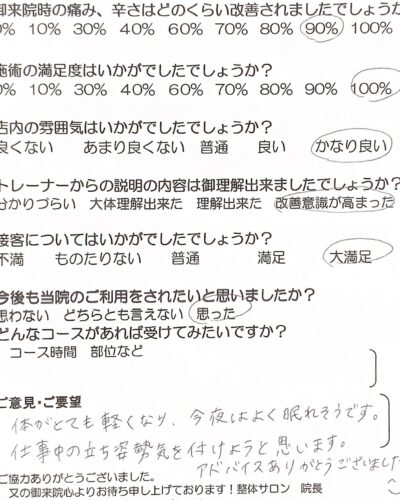 御来院時の痛み、辛さはどのくらい改善されましたでしょうか
0% 10% 30% 40% 60% 70% 80% 90% 100%
施術の満足度はいかがでしたでしょうか?
0% 10% 30% 40% 60% 70% 80% 90% 100%
店内の雰囲気はいかがでしたでしょうか?
良くない あまり良くない 普通 良い かなり良い
トレーナーからの説明の内容は御理解出来ましたでしょうか?
分かりづらい 大体理解出来た 理解出来た 改善意識が高まった
接客についてはいかがでしたでしょうか?
不満 ものたりない 普通 満足 大満足
今後も当院のご利用をされたいと思いましたか?
思わない どちらとも言えない 思った
どんなコースがあれば受けてみたいですか?
コース時間 部位など
ご意見・ご要望
体がとても軽くなり、今夜はよく眠れそうです。
仕事中の立ち姿勢気を付けようと思います。
アドバイスありがとうございました
ご協力ありがとうございました。
又の御来院心よりお待ち申し上げております!整体サロン 院長